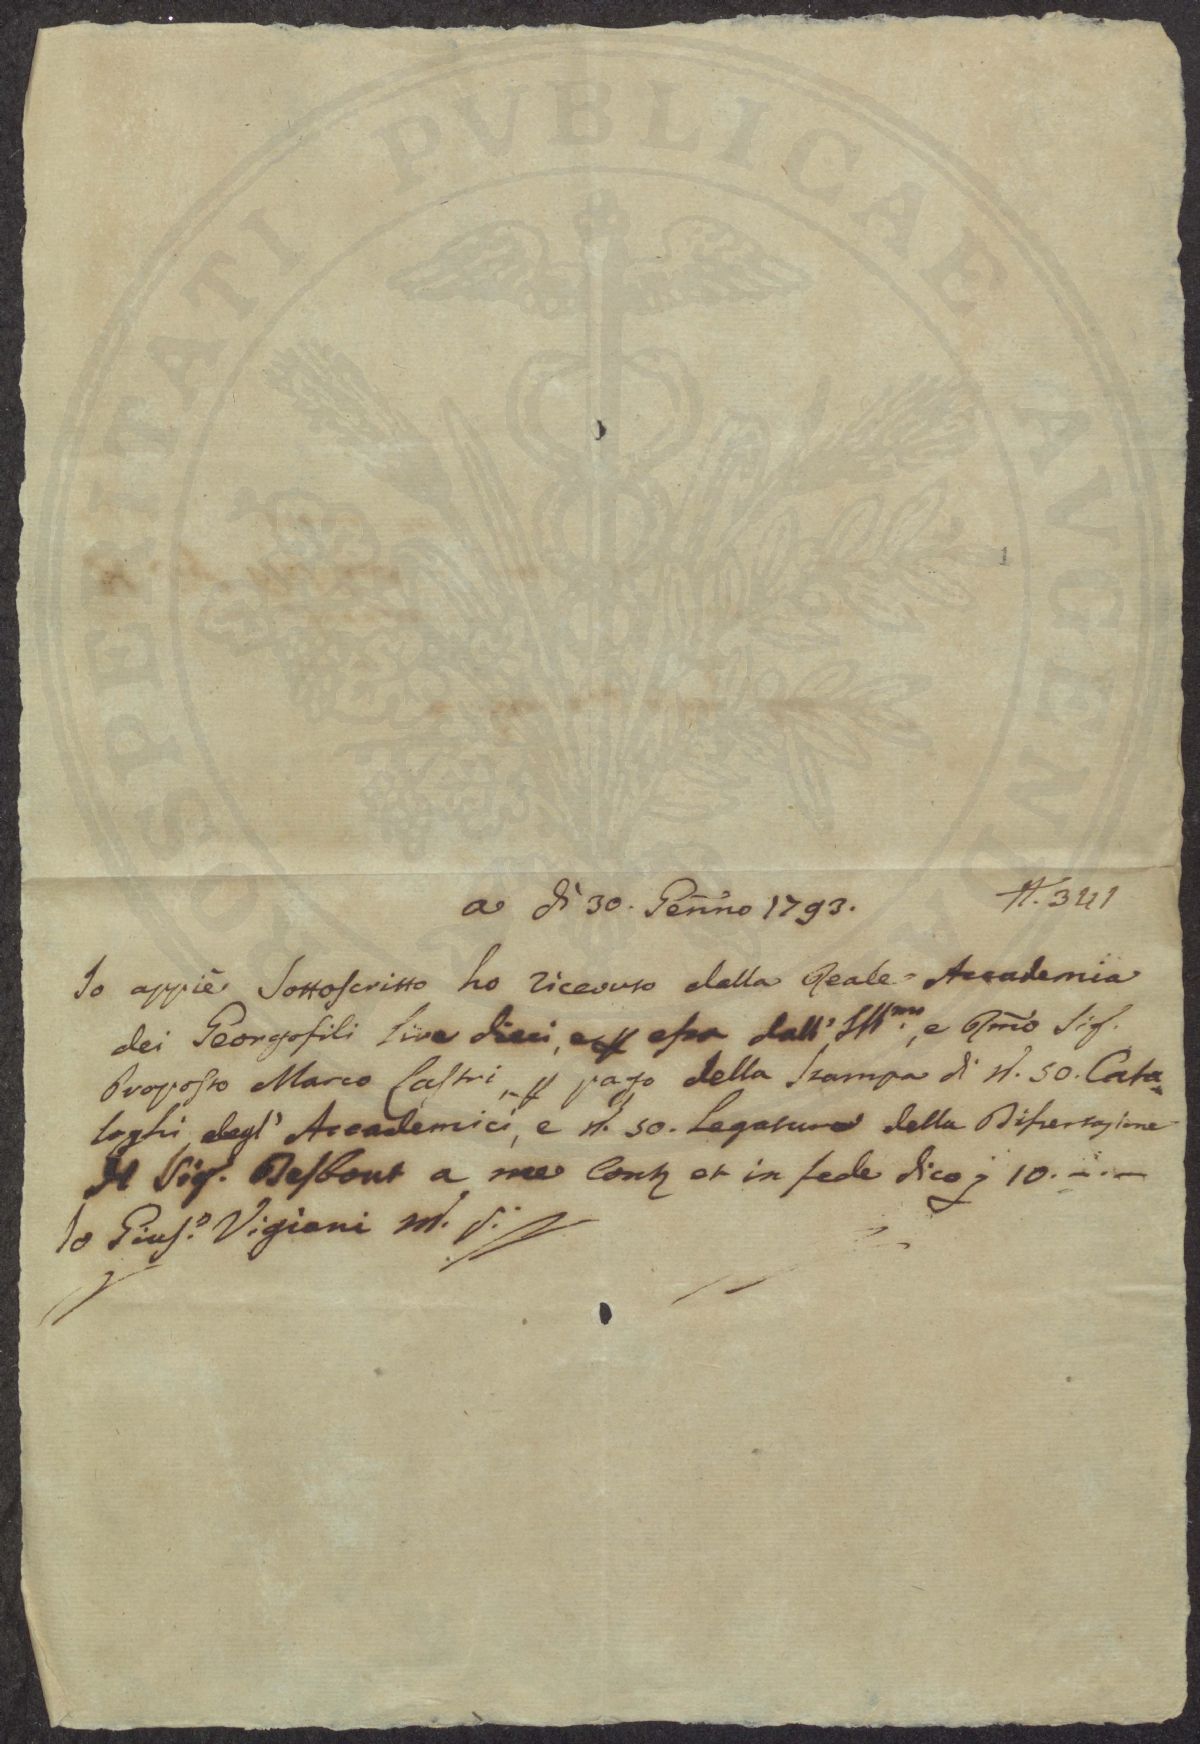 PROSPERITATI PVBLICAE AVGENDAE
1
a dì 30. Genn̄o 1793. N. 341
Io appiè Sottoscritto ho ricevuto dalla Reale Accademia
dei Georgofili Lire dieci, e p essa dall' Ill:mo, e Rm̄o Sig.
Proposto Marco Lastri, p pago della Stampa di N. 50. Cata=
loghi degl' Accademici, e N. 50. Legature della Disertazione
Sig. Desbout a me Contj et in fede dico 10. -.-
Io Gius:o Vigiani M. P.